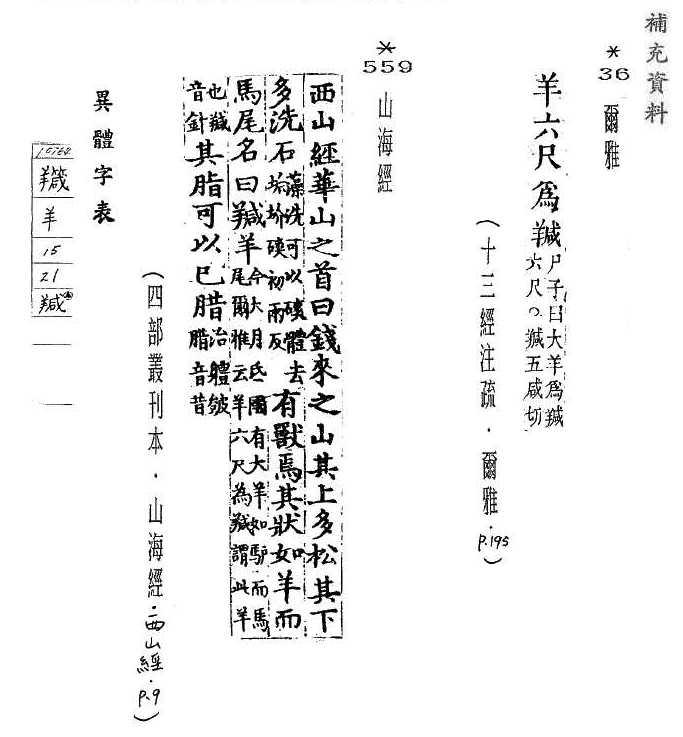 補充資料
*
36
爾雅
羊六尺爲羬
尸子曰大羊爲羬
六尺○羬五咸切
(十三經注疏．爾雅．P.195)
*
559
山海經
西山經華山之首曰錢來之山其上多松其下
多洗石
澡洗可以磢體去
垢圿磢初兩反
有獸焉其狀如羊而
馬尾名曰羬羊
今大月氐國有大羊如驴而馬
尾爾雅云羊六尺為羬謂此羊
也羬
音針
其脂可以已腊
治軆皴
腊音昔
(四部叢刊本．山海經．西山經．P.9)
異體字表
羊
15
21
羬